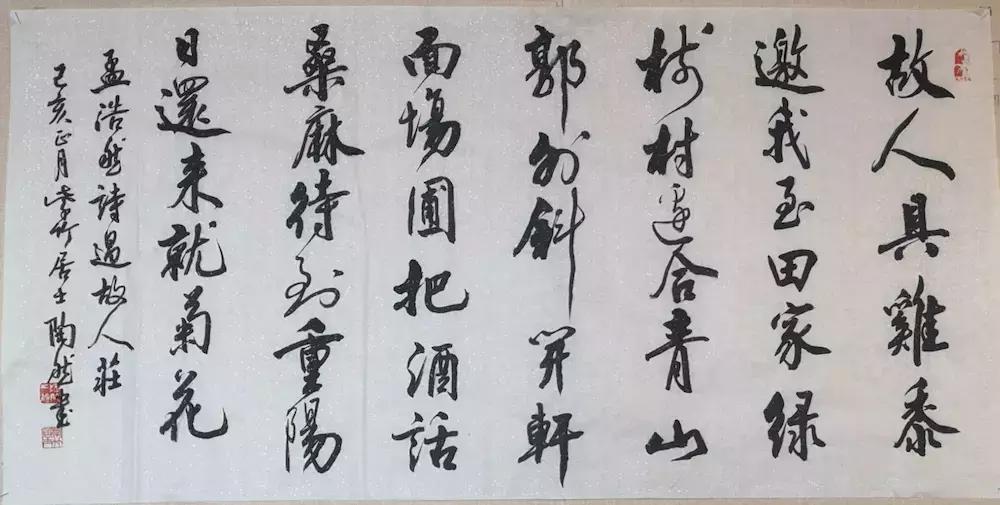 故人具雞黍
邀我至田家綠
樹村邊合青山
郭外斜開軒
面場圃把酒話
桑麻待到重陽
日還来就菊花
孟浩然詩過故人莊
己亥正月紫竹居士陶然書